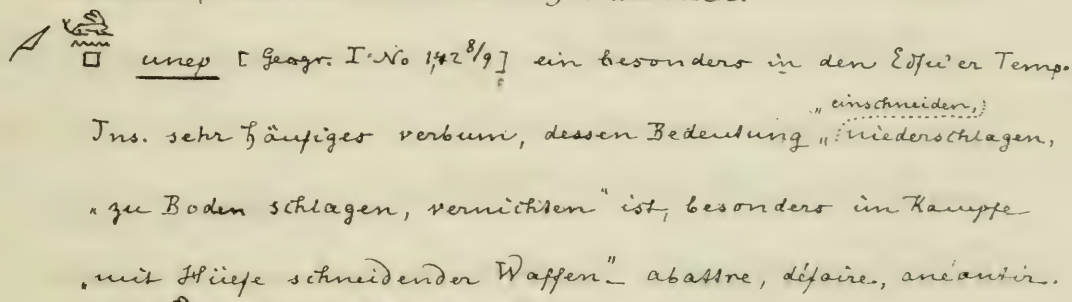 unep [Geogr. I. No 1,42 8/9] ein besonders in den Edfu'er Temp.
„einschneiden,
Ins. sehr häufiges verbum, dessen Bedeutung „niederschlagen,
„zu Boden schlagen, vernichten" ist, besonders im Kampfe
„mit Hülfe schneidender Waffen" – abattre, défaire, anéantir.